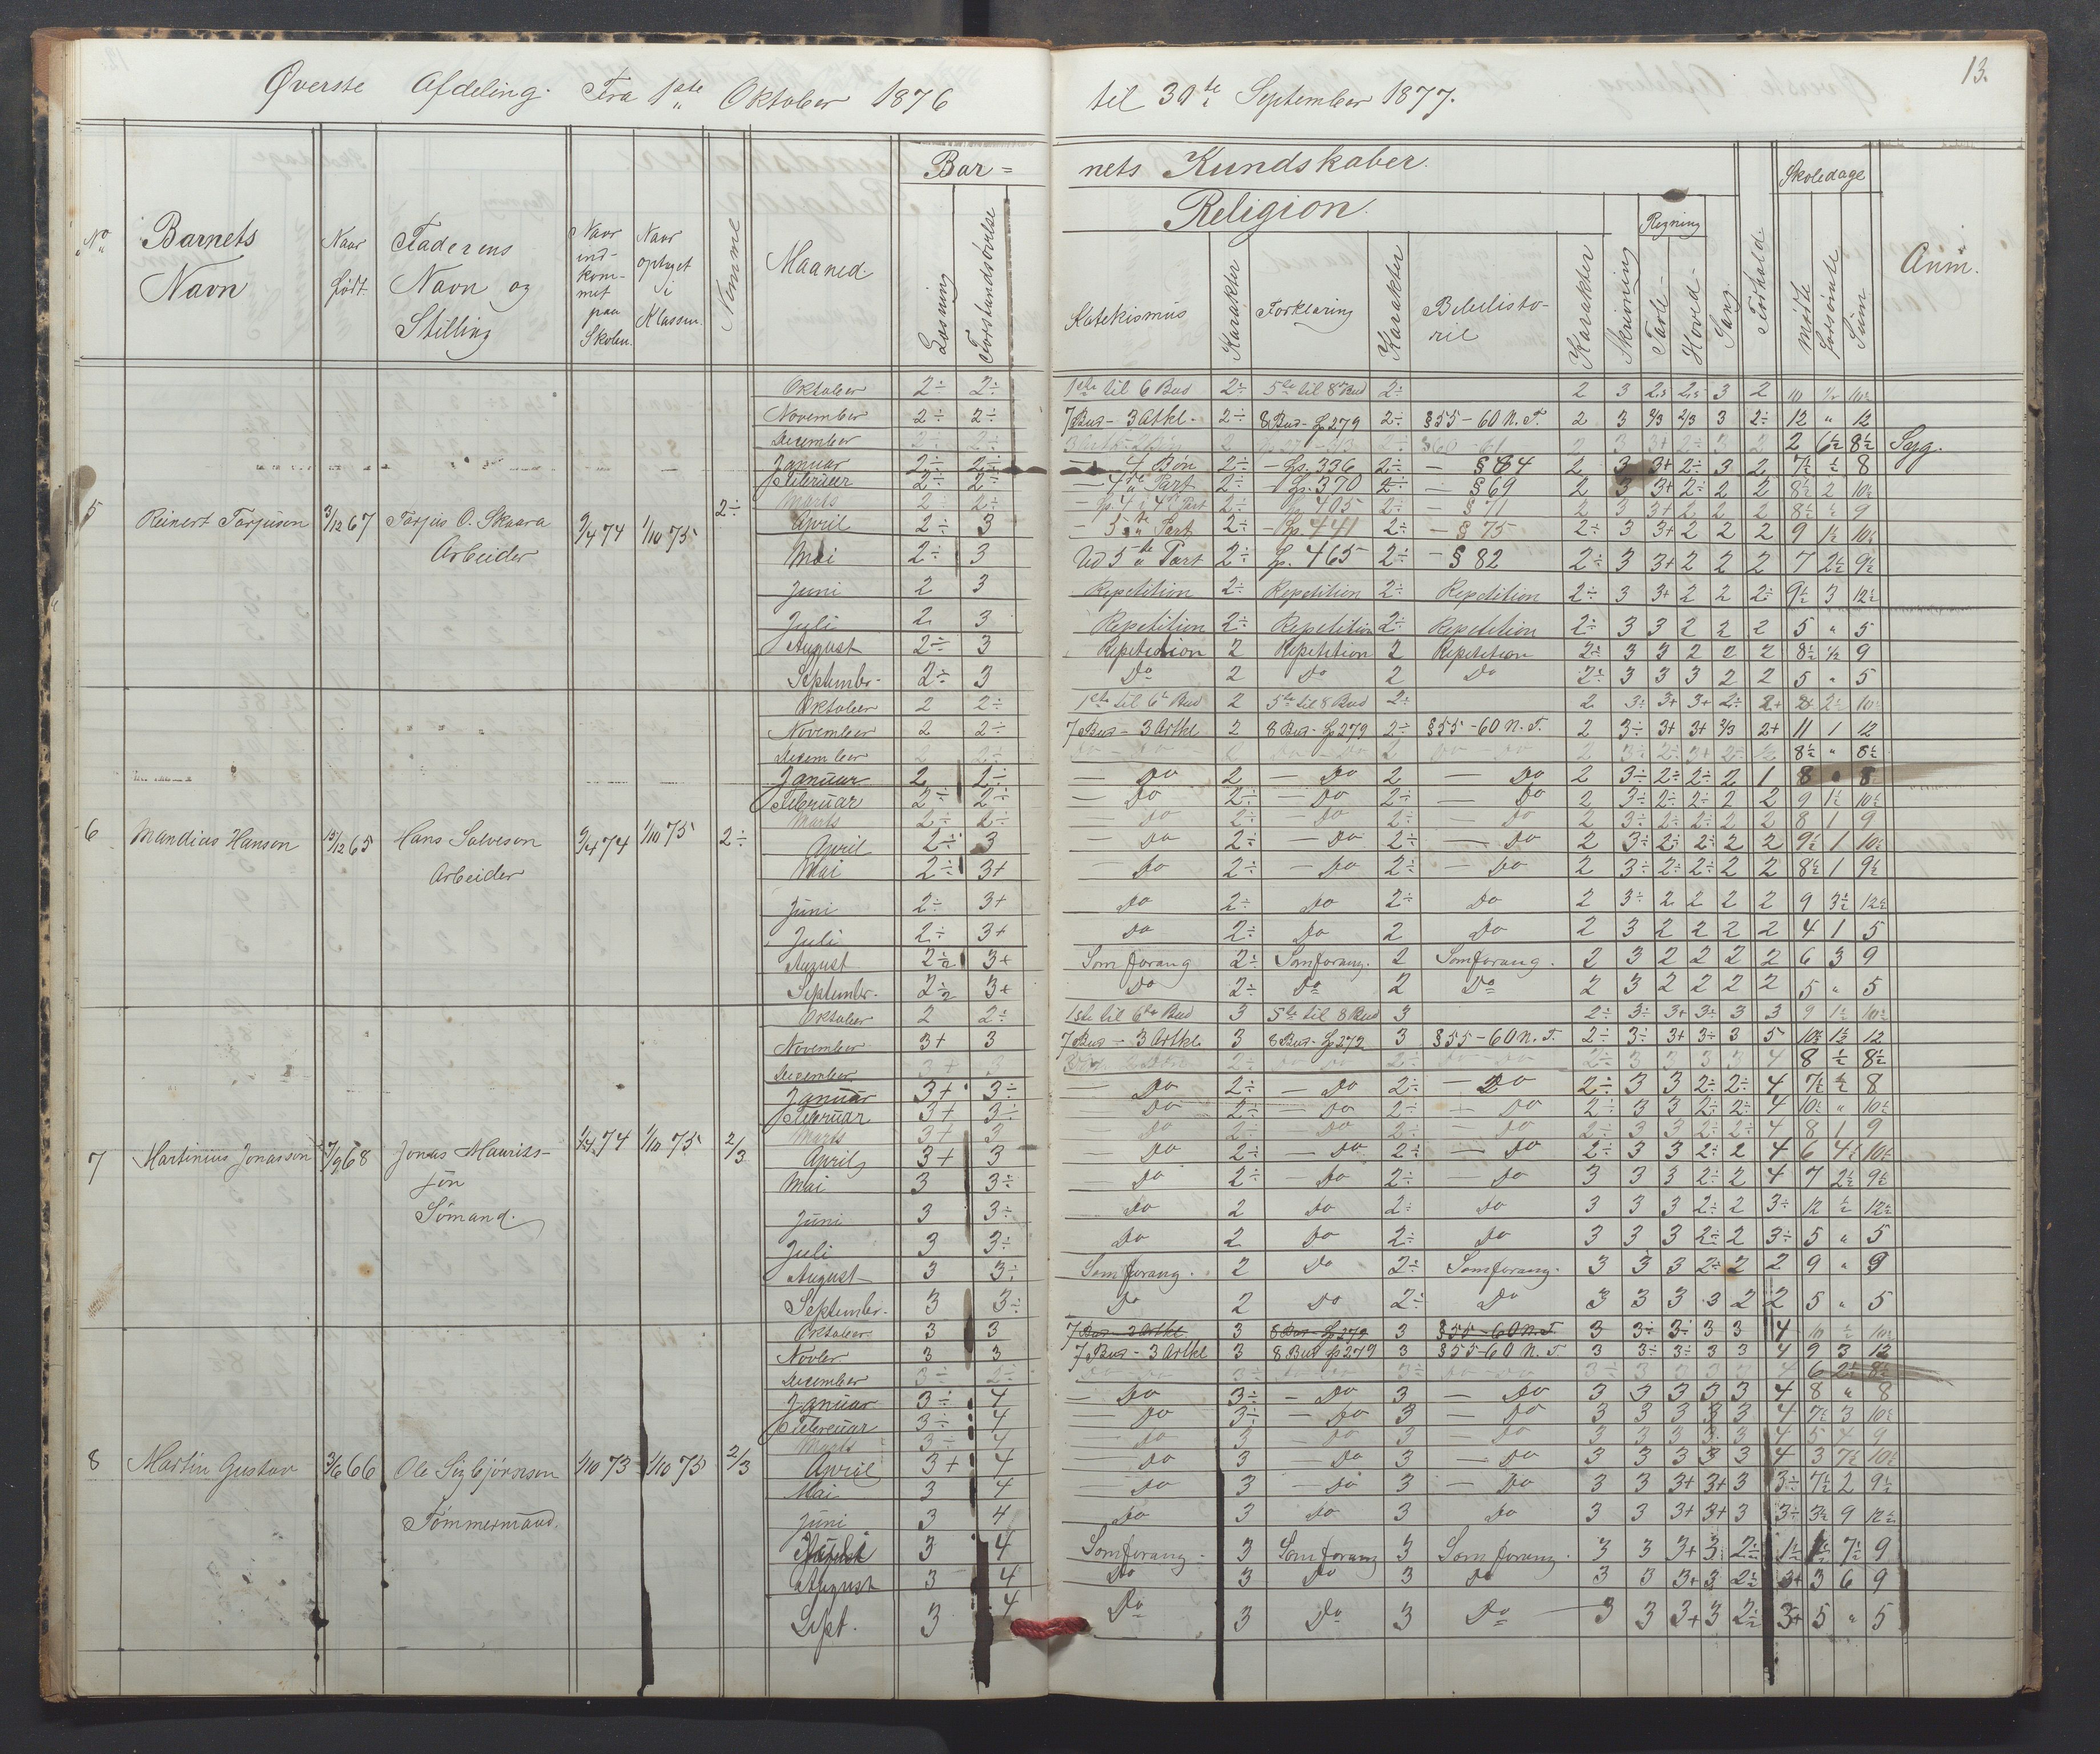 13.
Øverste Afdeling. Fra 1ste Oktober 1876 til 30te September 1877.
Bar= nets Kundskaber.
Religion.
Regning
Skoledage
No
Barnets Navn
Naar født
Faderens Navn og Stilling
Naar ind-kom-met paa Skolen.
Naar optaget i Klassen.
Nemme
Maaned.
Læsning
Forstandsøvelse
Katekismus
Karakter
Forklaring
Karakter
Bibelisto-rie
Karakter
Skrivning
Tavle
Hoved
Sang
Forhold
Mødte
Forsømte
Sum
Anm.
5 Reinert Torjusen 3/12 67 Torjus O. Skaara Arbeider 9/4 74 1/10 75 2÷
Oktober 2÷ 2÷ 1ste til 6 Bud 2÷ 5te til 8 Bud 2÷ 2 3
November 2÷ 2÷ 7 Bud - 3 Artkl. 2÷ 8 Bud - p 279 2÷ §55-60 N. T. 2 3 2/3 2/3 3 2÷ 12 " 12
December 2 6½ 8½ Syg.
Januar 2÷ 2÷ — 4 Bøn 2÷ — p. 336 2÷ — §64 2 3 3+ 2÷ 3 2 7½ ½ 8
Februar 2÷ 2÷ — 4de Part 2÷ — p. 370 2÷ — §69 2 3 3+ 2÷ 2 2 8½ 2 10½
Marts 2÷ 2÷ 2÷ p 405 2÷ — §71 2 3 3+ 2 2 2 8½ ½ 9
April 2÷ 3 — 5te Part 2÷ — p. 441 2÷ — §75 2÷ 3 3+ 2 2 2 9 1½ 10½
Mai 2÷ 3 Ud 5te Part 2÷ p. 465 2÷ — §82 2÷ 3 3+ 2 2 2 7 2½ 9½
Juni 2 3 Repetition 2÷ Repetition 2÷ Repetition 2÷ 3 3+ 2 2 2÷ 9½ 3 12½
Juli 2 3 Repetition 2÷ Repetition 2÷ Repetition 2÷ 3 3 2 2 2 5 " 5
August 2÷ 3 Repetition 2 Repetition 2 Repetition 2÷ 3 3 2 2 2 8½ ½ 9
Septembr. 2÷ 3 Do 2 Do 2 Do 2÷ 3 3 3 2 2 5 " 5
6 Mandius Hansen 15/12 65 Hans Salvesen Arbeider 9/4 74 1/10 75 2÷
Oktober 2 2÷ 1ste til 6te Bud 2 5te til 8 Bud 2÷ 2 3÷ 3+ 3+ 2÷
November 2 2÷ 7 Bud - 3 Artkl 2 8 Bud - p 279 2÷ §55-60 N. T. 2 3÷ 3+ 3+ 2/3 2+ 11 1 12
December 8½ " 8½
Januar 2 2÷ — Do 2 — Do 2 — Do 2 3÷ 2÷ 2÷ 2 1 8 8
Februar 2÷ 2÷ — Do 2÷ — Do 2÷ — Do 2 3÷ 2÷ 2÷ 2 2 9 1½ 10½
Marts 2÷ 2÷ — Do 2÷ — Do 2÷ — Do 2 3÷ 2÷ 2÷ 2 2 8 1 9
April 2÷ 3 — Do 2÷ — Do 2÷ — Do 2 3÷ 2÷ 2÷ 2 2 9½ 1 10½
Mai 2÷ 3+ — Do 2÷ — Do 2÷ — Do 2 3÷ 2÷ 2÷ 2 2 8½ 1 9½
Juni 2÷ 3+ Do 2÷ Do 2÷ Do 2 3÷ 2 2 2 2 9 3½ 12½
Juli 2÷ 3+ Do 2÷ Do 2 Do 2 3 2 2 2 2 4 1 5
August 3+ Som forang 2÷ Som forang. 2 Som forang. 2 3 2 2 2 2 6 3 9
Septembr. 3+ Do 2÷ Do 2 Do 2 3 2 2 2 2 5 " 5
7 Martinius Jonassen 7/9 68 Jonas Maurits-søn Sømand. 74 1/10 75 2/3
Oktober 2 2÷ 1ste til 6te Bud 3 5te til 8 Bud 3 2÷ 3÷ 3+ 3÷ 3 3 9 1½ 10½
November 3+ 3 7 Bud - 3 Artkl 3 8 Bud - p 279 3 §55-60 N. T. 2÷ 3÷ 3+ 3÷ 3 5 10½ 1½ 12
December 3+ 3 4 8 ½ 8½
Januar 3+ 3÷ — Do 2÷ — Do 2÷ — Do 2÷ 3 3 2÷ 2÷ 4 7½ ½ 8
Februar 3+ 3÷ — Do 2÷ — Do 2÷ — Do 2÷ 3 3 2÷ 2÷ 4 10½ " 10½
Marts 3+ 3 — Do 2÷ — Do 2÷ — Do 2÷ 3 3 2÷ 2÷ 4 8 1 9
April 3+ 3 — Do 2÷ — Do 2÷ — Do 2÷ 3 3 2÷ 2 4 6 4½ 10½
Mai 3 3÷ — Do 2÷ — Do 2÷ — Do 3 3 3 2÷ 2 4 7 2½ 9½
Juni 3 3÷ Do 2 Do 2÷ Do 3 3 3 2÷ 2 3÷ 12 ½ 12½
Juli 3 3÷ Do 2 Do 2÷ Do 3 3 3 2÷ 2 3÷ 5 " 5
August 3 3÷ Som forang. 2 Do 2÷ Som forang. 3 3 3 2÷ 2 2 9 " 9
Septembr. 3 3÷ Do 2 Do 2÷ Do 3 3 3 3 2 2 5 " 5
8 Martin Gustav 3/6 66 Ole Sigbjørnsen Tømmermand. 1/10 73 1/10 75 2/3
Oktober 3 3 7 Bud - 3 Artkl 3 8 Bud - p 279 3 §55-60 N. T. 3 3÷ 3÷ 3 3 4 10 ½ 10½
Novbr. 3 3 7 Bud - 3 Artkl 3 8 Bud p 279 3 §55-60 N. T 3 3÷ 3÷ 3 3 4 9 3 12
December 3÷ 4 6 2½ 8½
Januar 3÷ 4 — Do 3÷ — Do 3 — Do 3 3 3 3 3 4 8 " 8
Februar 3÷ 4 — Do 3÷ — Do 3 — Do 3 3 3 3 3 4 7½ 3 10½
Marts 3÷ 4 — Do 3 — Do 3 — Do 3 3 3 3 3 4 5 4 9
April 3+ 4 — Do 3 — Do 3 — Do 3 3 3 3 3 4 3 7½ 10½
Mai 3 4 — Do 3 — Do 3 — Do 3 3 3+ 3+ 3 3÷ 7½ 2 9½
Juni 3 4 Do 3 Do 3 Do 3 3 3+ 3+ 3 3÷ 3½ 9 12½
3 4 Som forang. 3 Som forang 3 Som forang. 3 3 3+ 7½ 9
August 3 4 Do 3 Do 3 Do 3 3 3+ 3 3+ 3 6 9
Sept. 3 4 Do 3 Do 3 Do 3 3 3+ 3 3+ 5 " 5